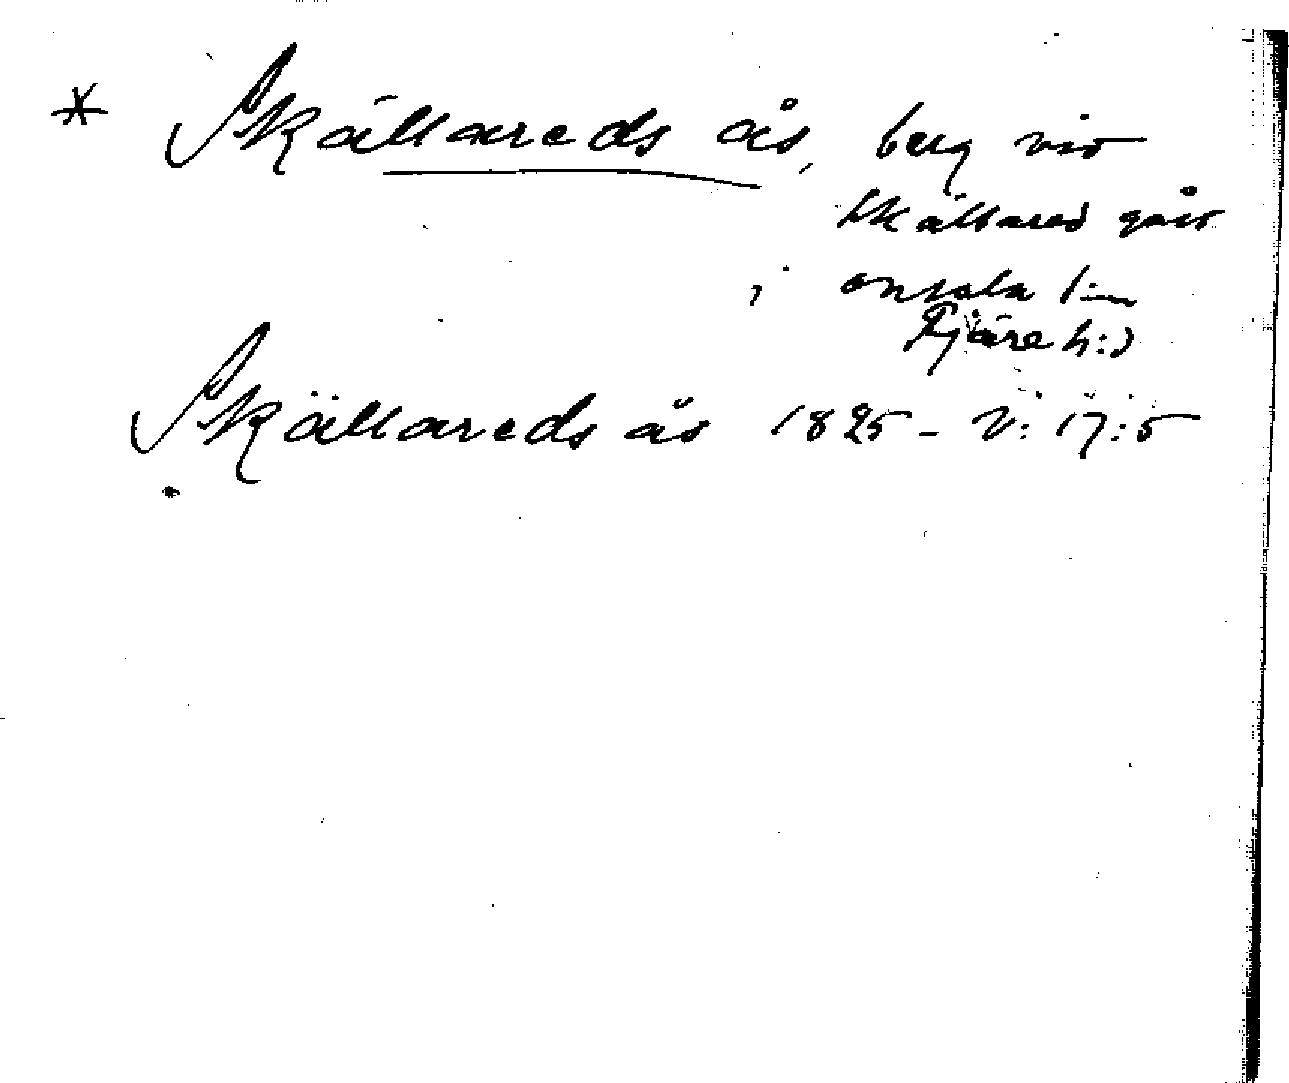 * Skällareds ås, berg vid
Skällared gård
i Onsala s:n
Fjäre h:d
Skällareds ås 1825 - V: 17:5